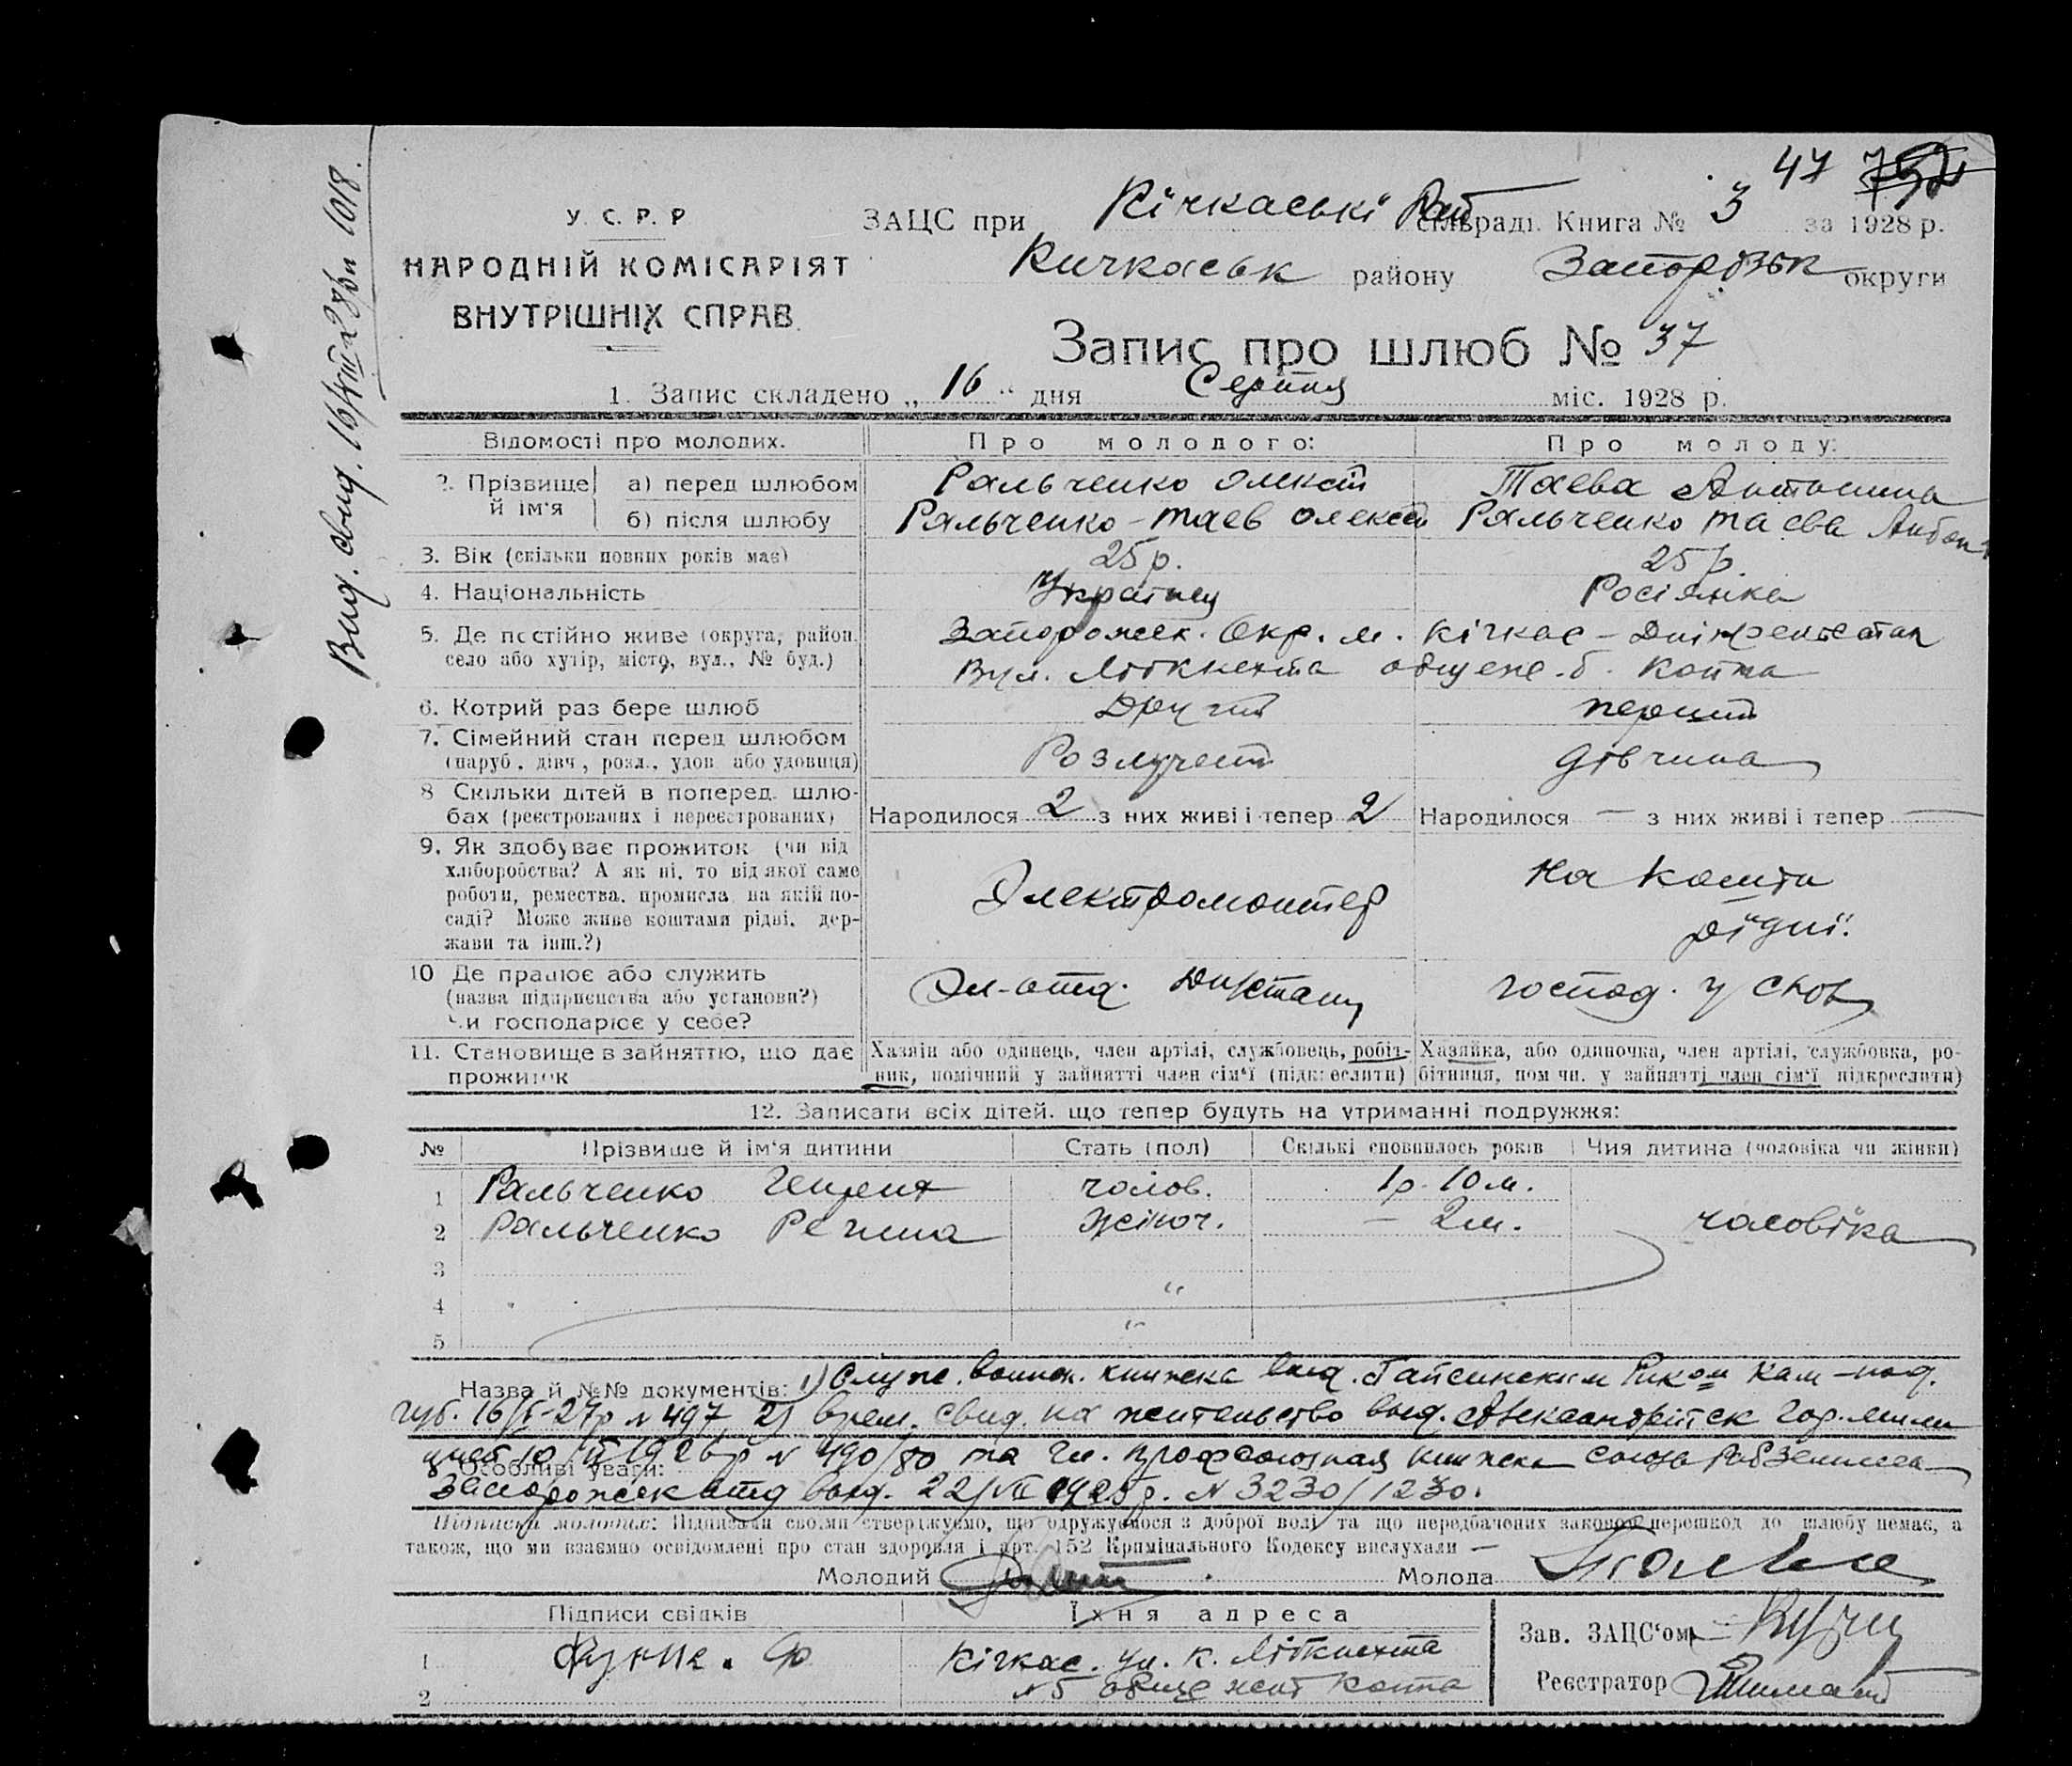 47 752
У. С. Р. Р
НАРОДНІЙ КОМІСАРІЯТ
ВНУТРІШНІХ СПРАВ
ЗАЦС при Кічкаські Рай сільраді. Книга № 3 за 1928 р.
Кичкаськ району Запорізьк округи
Запис про шлюб № 37
1. Запис складено „ 16 “ дня Серпня міс. 1928 р.
Вид. свид. 16/VIII 28 1018.
Відомості про молодих. Про молодого: Про молоду:
2. Прізвище й ім'я а) перед шлюбом Ральченко Олексій Таева Антонина
б) після шлюбу Ральченко-Таев Олексей Ральченко Таева Антон
3. Вік (скільки повних років має) 25 р. 25 р
4. Національність Українец Росіянка
5. Де постійно живе (округа, район, Запорожск. Окр. м. Кічкас –
село або хутір, місто, вул., № буд.) Вул. Лібкнехта общеж. б. Коппа
6. Котрий раз бере шлюб Другий перший
7. Сімейний стан перед шлюбом Розлучений дівчина
(паруб., дівч., розл., удов. або удовиця)
8 Скільки дітей в поперед. шлю-
бах (реєстрованих і нереєстрованих) Народилося 2 з них живі і тепер 2 Народилося — з них живі і тепер —
9. Як здобуває прожиток (чи від
хліборобства? А як ні, то від якої саме
роботи, ремества, промисла, на якій по-
саді? Може живе коштами рідні, дер-
жави та інш.?)
Электромонтер На кошти
рідні.
10 Де працює або служить
(назва підприємства або установи?)
Чи господарює у себе?
Эл-отд. господ. у своѣ
11. Становище в зайняттю, що дає
прожиток
Хазяїн або одинець, член артілі, службовець, робіт-
ник, помічний у зайнятті член сім'ї (підкреслити)
Хазяйка, або одиночка, член артілі, службовка, ро-
бітниця, помічн. у зайнятті член сім'ї підкреслити)
12. Записати всіх дітей, що тепер будуть на утриманні подружжя:
№ Прізвище й ім'я дитини Стать (пол) Скількі сповнилось років Чия дитина (чоловіка чи жінки)
1 Ральченко чолов. 1 р. 10 м.
2 Ральченко Регина жіноч. — 2 м. чоловіка
3
4 “
5 “
Назва й №№ документів: 1) Служ. воинск. книжка выд. Гайсинским Риком Кам-под.
губ. 16/ -27р № 497, 2) врем. свид. на жительство выд. Александрійск Гор. мили
цией 10/ 1926р № 490/80 та чл. профсоюзная книжка союза
Особливі уваги:
Запорожск отд выд. 22/VII 1925р. № 3230/1230.
Підписи молодих: Підписами своїми стверджуємо, що одружуємося з доброї волі та що передбачених законом перешкод до шлюбу немає, а
також, що ми взаємно освідомлені про стан здоровля і арт. 152 Кримінального Кодексу вислухали —
Молодий Молода
Підписи свідків Їхня адреса Зав. ЗАЦС‘ом
1 Кічкас. ул. К. Лібкнехта
2 № 5 общежит Коппа Реєстратор